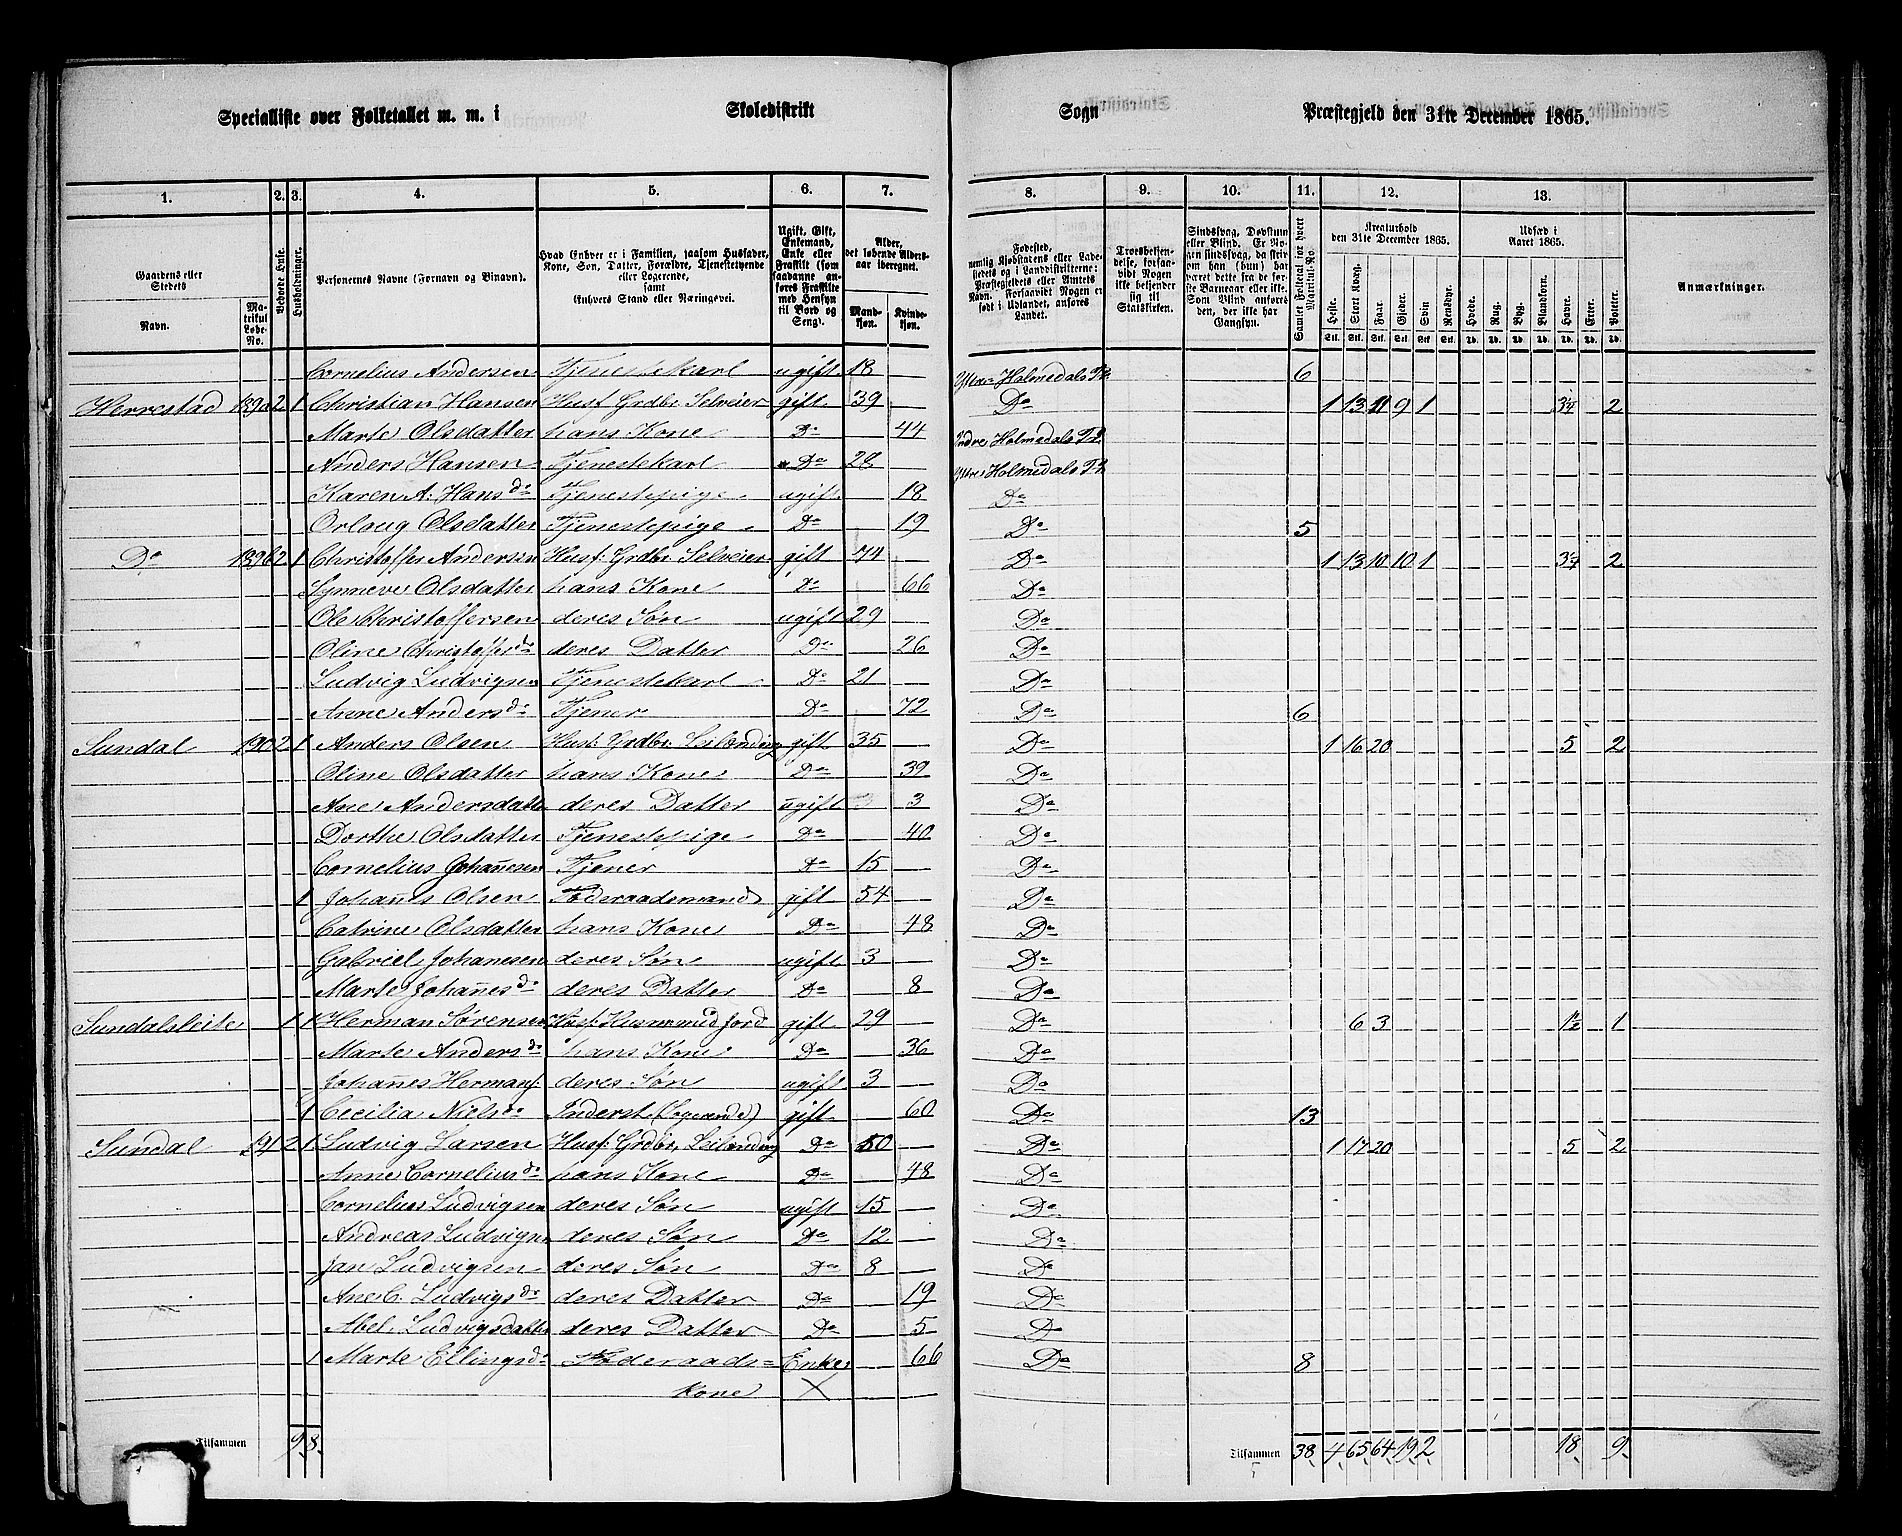 Specialliste over Folketallet m. m. i Skoledistrikt Sogn Præstegjeld den 31te December 1865.
1. 2. 3. 4. 5. 6. 7. 8. 9. 10. 11. 12. 13.
Gaardens eller Stedets Navn. Matrikul Løbe-No. Beboede Huse. Husholdninger. Personernes Navne (Fornavn og Binavn).
Hvad Enhver er i Familien, saasom Husfader, Kone, Søn, Datter, Forældre, Tjenestetyende eller Logerende, samt Enhvers Stand eller Næringsvei.
Ugift, Gift, Enkemand, Enke eller Fraskilt (som saadanne anføres Fraskilte med Hensyn til Bord og Seng).
Alder, det løbende Aldersaar iberegnet. Mandkjøn. Kvindekjøn.
Fødested, nemlig Kjøbstadens eller Ladestedets og i Landdistrikterne: Præstegjeldets eller Amtets Navn. Forsaavidt Nogen er født i Udlandet, anføres Landet.
Troesbekjendelse, forsaavidt Nogen ikke bekjender sig til Statskirken.
Sindssvag, Døvstum eller Blind. Er Nogen sindssvag, da skrives om han (hun) har været dette fra de første Barneaar eller ikke. Som Blind anføres den, der ikke har Gangsyn.
Samlet Folketal for hvert Matrikul-No.
Kreaturhold den 31te December 1865. Heste. Stort Kvæg. Faar. Gjeder. Svin. Rensdyr.
Udsæd i Aaret 1865. Hvede. Rug. Byg. Blandkorn. Havre. Erter. Poteter.
Anmærkninger.
Cornelius Andersen Tjenestekarl ugift 18 Yttre Holmedals 6
Herrestad 189a 2 1 Christian Hansen Husf. Grdbr. Selveier gift 39 Do 1 13 11 9 1 3¾ 2
Marte Olsdatter hans Kone Do 44 Indre Holmedals
Anders Hansen Tjenestekarl Do 28 Yttre Holmedals
Karen A. Hansd. Tjenestepige ugift 18 Do
Orlaug Olsdatter Tjenestepige Do 19 Do 5
Do 189b 2 1 Christoffer Anderssen Husf. Grdbr. Selveier gift 74 Do 1 13 10 10 1 3¾ 2
Synneve Olsdatter hans Kone Do 66 Do
Ole Christoffersen deres Søn ugift 29 Do
Oline Christoffersd. deres Datter Do 26 Do
Ludvig Ludvigsen Tjenestekarl Do 21 Do
Anne Andersd. Tjener Do 72 Do 6
Sundal 190 2 1 Anders Olsen Husf. Grdbr. Leilænding gift 35 Do 1 16 20 5 2
Oline Olsdatter hans Kone Do 39 Do
Ane Andersdatter deres Datter ugift 3 Do
Dorthe Olsdatter Tjenestepige Do 40 Do
Cornelius Johannesen Tjener Do 15 Do
1 Johannes Olsen Føderaadsmand gift 54 Do
Catrine Olsdatter hans Kone Do 48 Do
Gabriel Johanesen deres Søn ugift 3 Do
Marte Johannesd. deres Datter Do 8 Do
Sundalsleite 1 1 Herman Sørensen Husf. Husmand m. Jord gift 29 Do 6 3 1½ 1
Marte Andersd. hans Kone Do 36 Do
Johannes Hermans. deres Søn ugift 3 Do
1 Cecilia Nielsd. Inderst (Logerende) gift 60 Do 13
Sundal 191 2 1 Ludvig Larsen Husf. Grdbr. Leilænding Do 50 Do 1 17 20 5 2
Anne Corneliusd. hans Kone Do 48 Do
Cornelius Ludvigsen deres Søn ugift 15 Do
Andreas Ludvigsen deres Søn Do 12 Do
Jan Ludvigsen deres Søn Do 8 Do
Ane C. Ludvigsd. deres Datter Do 19 Do
Abel Ludvigsdatter deres Datter Do 5 Do
1 Marte Ellingsd. Føderaads= Enke 66 Do 8
Kone X
Tilsammen 9 8 Tilsammen 38 4 65 64 19 2 18 9